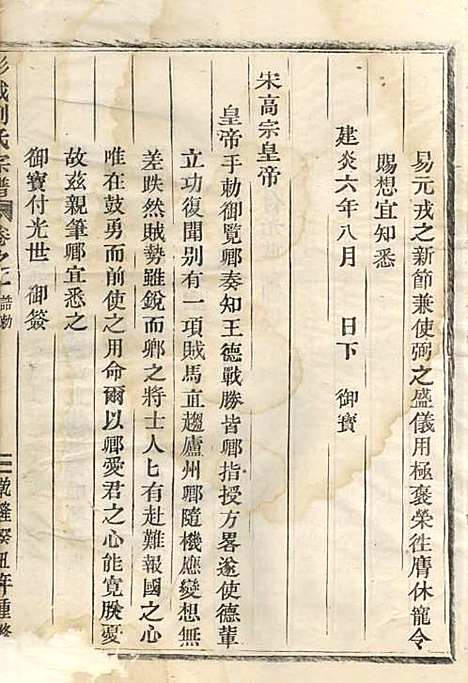 易元戎之新節兼使弼之盛儀用極褒榮徃膺休寵令
賜想宜知悉
建炎六年八月　日下　御寶
宋高宗皇帝
皇帝手勅御覽卿奏知王德戰勝皆卿指授方畧遂使德輩
立功復聞別有一項賊馬直趨廬州卿隨機應變想無
差跌然賊勢雖銳而卿之將士人匕有赴難報國之心
唯在鼓勇而前使之用命爾以卿愛君之心能寛朕憂
故兹親筆卿宜悉之
御寶付光世　御簽
彭城劉氏宗譜　卷之一　誥勅　二　乾隆癸丑年重修